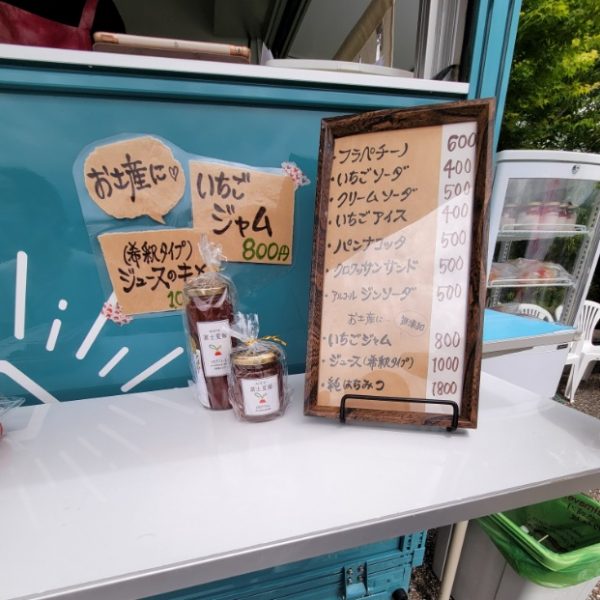 お土産に♡
いちご
ジャム
800円
(希釈タイプ)
ジュースのキメ
10
・フラペチーノ 600
・いちごソーダ 400
・クリームソーダ 500
・いちごアイス 400
・パンナコッタ 500
・クロワッサンサンド 500
・アルコール ジンソーダ 500
お土産に
無添加
・いちごジャム 800
・ジュース(希釈タイプ) 1000
・純はちみつ 1800